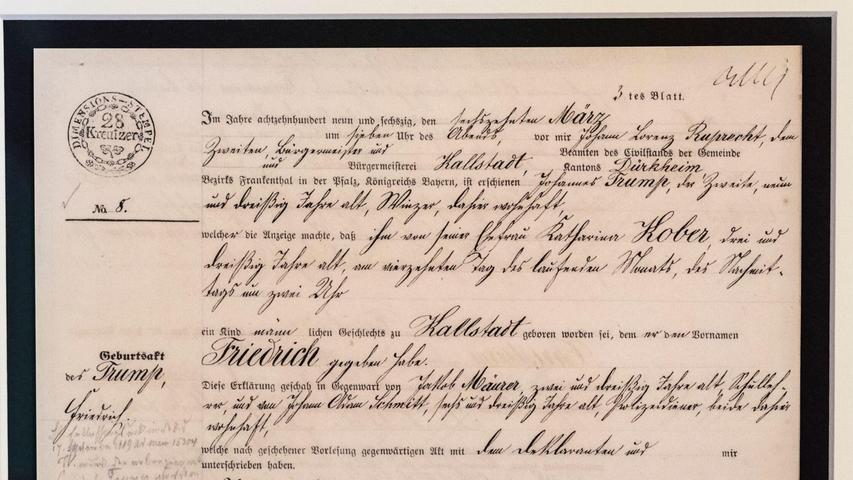 3 tes Blatt.
DIMENSIONS-STEMPEL
28
Kreutzer
Im Jahre achtzehnhundert neun und sechszig, den sechszehnten März
um sieben Uhr des Abends, vor mir Johann Lorenz Ruprecht, dem
Zweiten Bürgermeister und Beamten des Civilstandes der Gemeinde
und Bürgermeisterei Kallstadt, Kantons Dürkheim
Bezirks Frankenthal in der Pfalz, Königreichs Bayern, ist erschienen Johannes Trump, der Zweite, neun
und dreißig Jahre alt, Winzer, dahier wohnhaft
No. 8.
welcher die Anzeige machte, daß ihm von seiner Ehefrau Katharina Kober, drei und
dreißig Jahre alt, am vierzehnten Tag des laufenden Monats, des Nachmit-
tags um zwei Uhr
ein Kind männ lichen Geschlechts zu Kallstadt geboren worden sei, dem er den Vornamen
Friedrich gegeben habe.
Geburtsakt
des Trump,
Friedrich.
Diese Erklärung geschah in Gegenwart von Jakob Mäurer, zwei und dreißig Jahre alt, Schulleh-
rer, und von Johann Adam Schmitt, sechs und dreißig Jahre alt, Polizeidiener, beide dahier
wohnhaft,
welche nach geschehener Vorlesung gegenwärtigen Akt mit dem Deklaranten und mir
unterschrieben haben.